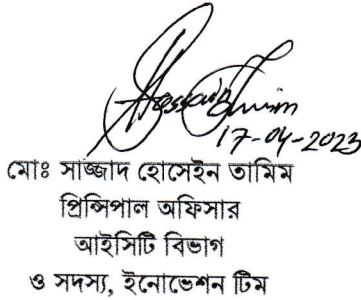 Hossain Tamim
17-04-2023
মোঃ সাজ্জাদ হোসেইন তামিম
প্রিন্সিপাল অফিসার
আইসিটি বিভাগ
ও সদস্য, ইনোভেশন টিম